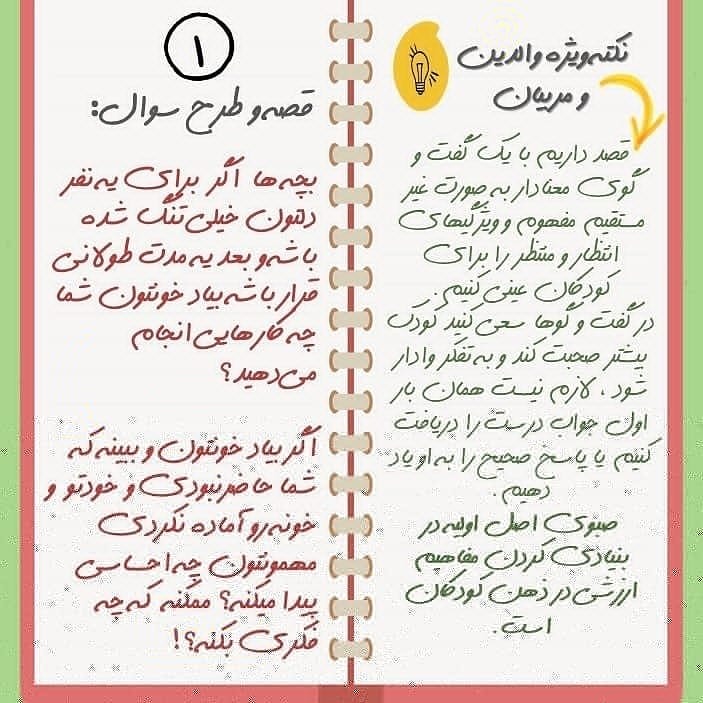 نکته ویژه والدین
و مربیان
قصد داریم با یک گفت و
گوی معنادار به صورت غیر
مستقیم مفهوم و ویژگیهای
انتظار و منتظر را برای
کودکان عینی کنیم.
در گفت و گوها سعی کنید کودک
بیشتر صحبت کند و به تفکر وادار
شود، لازم نیست همان بار
اول جواب درست را دریافت
کنیم یا پاسخ صحیح را به او یاد
دهیم.
صبوری اصل اولیه در
بنیادی کردن مفاهیم
ارزشی در ذهن کودکان
است.
۱
قصه و طرح سوال:
بچه ها اگر برای یه نفر
دلتون خیلی تنگ شده
باشه و بعد یه مدت طولانی
قرار باشه بیاد خونتون شما
چه کارهایی انجام
می‌دهید؟
اگر بیاد خونتون و ببینه که
شما حاضر نبودی و خودتو و
خونه رو آماده نکردی
مهمونتون چه احساسی
پیدا میکنه؟ ممکنه که چه
فکری بکنه؟!